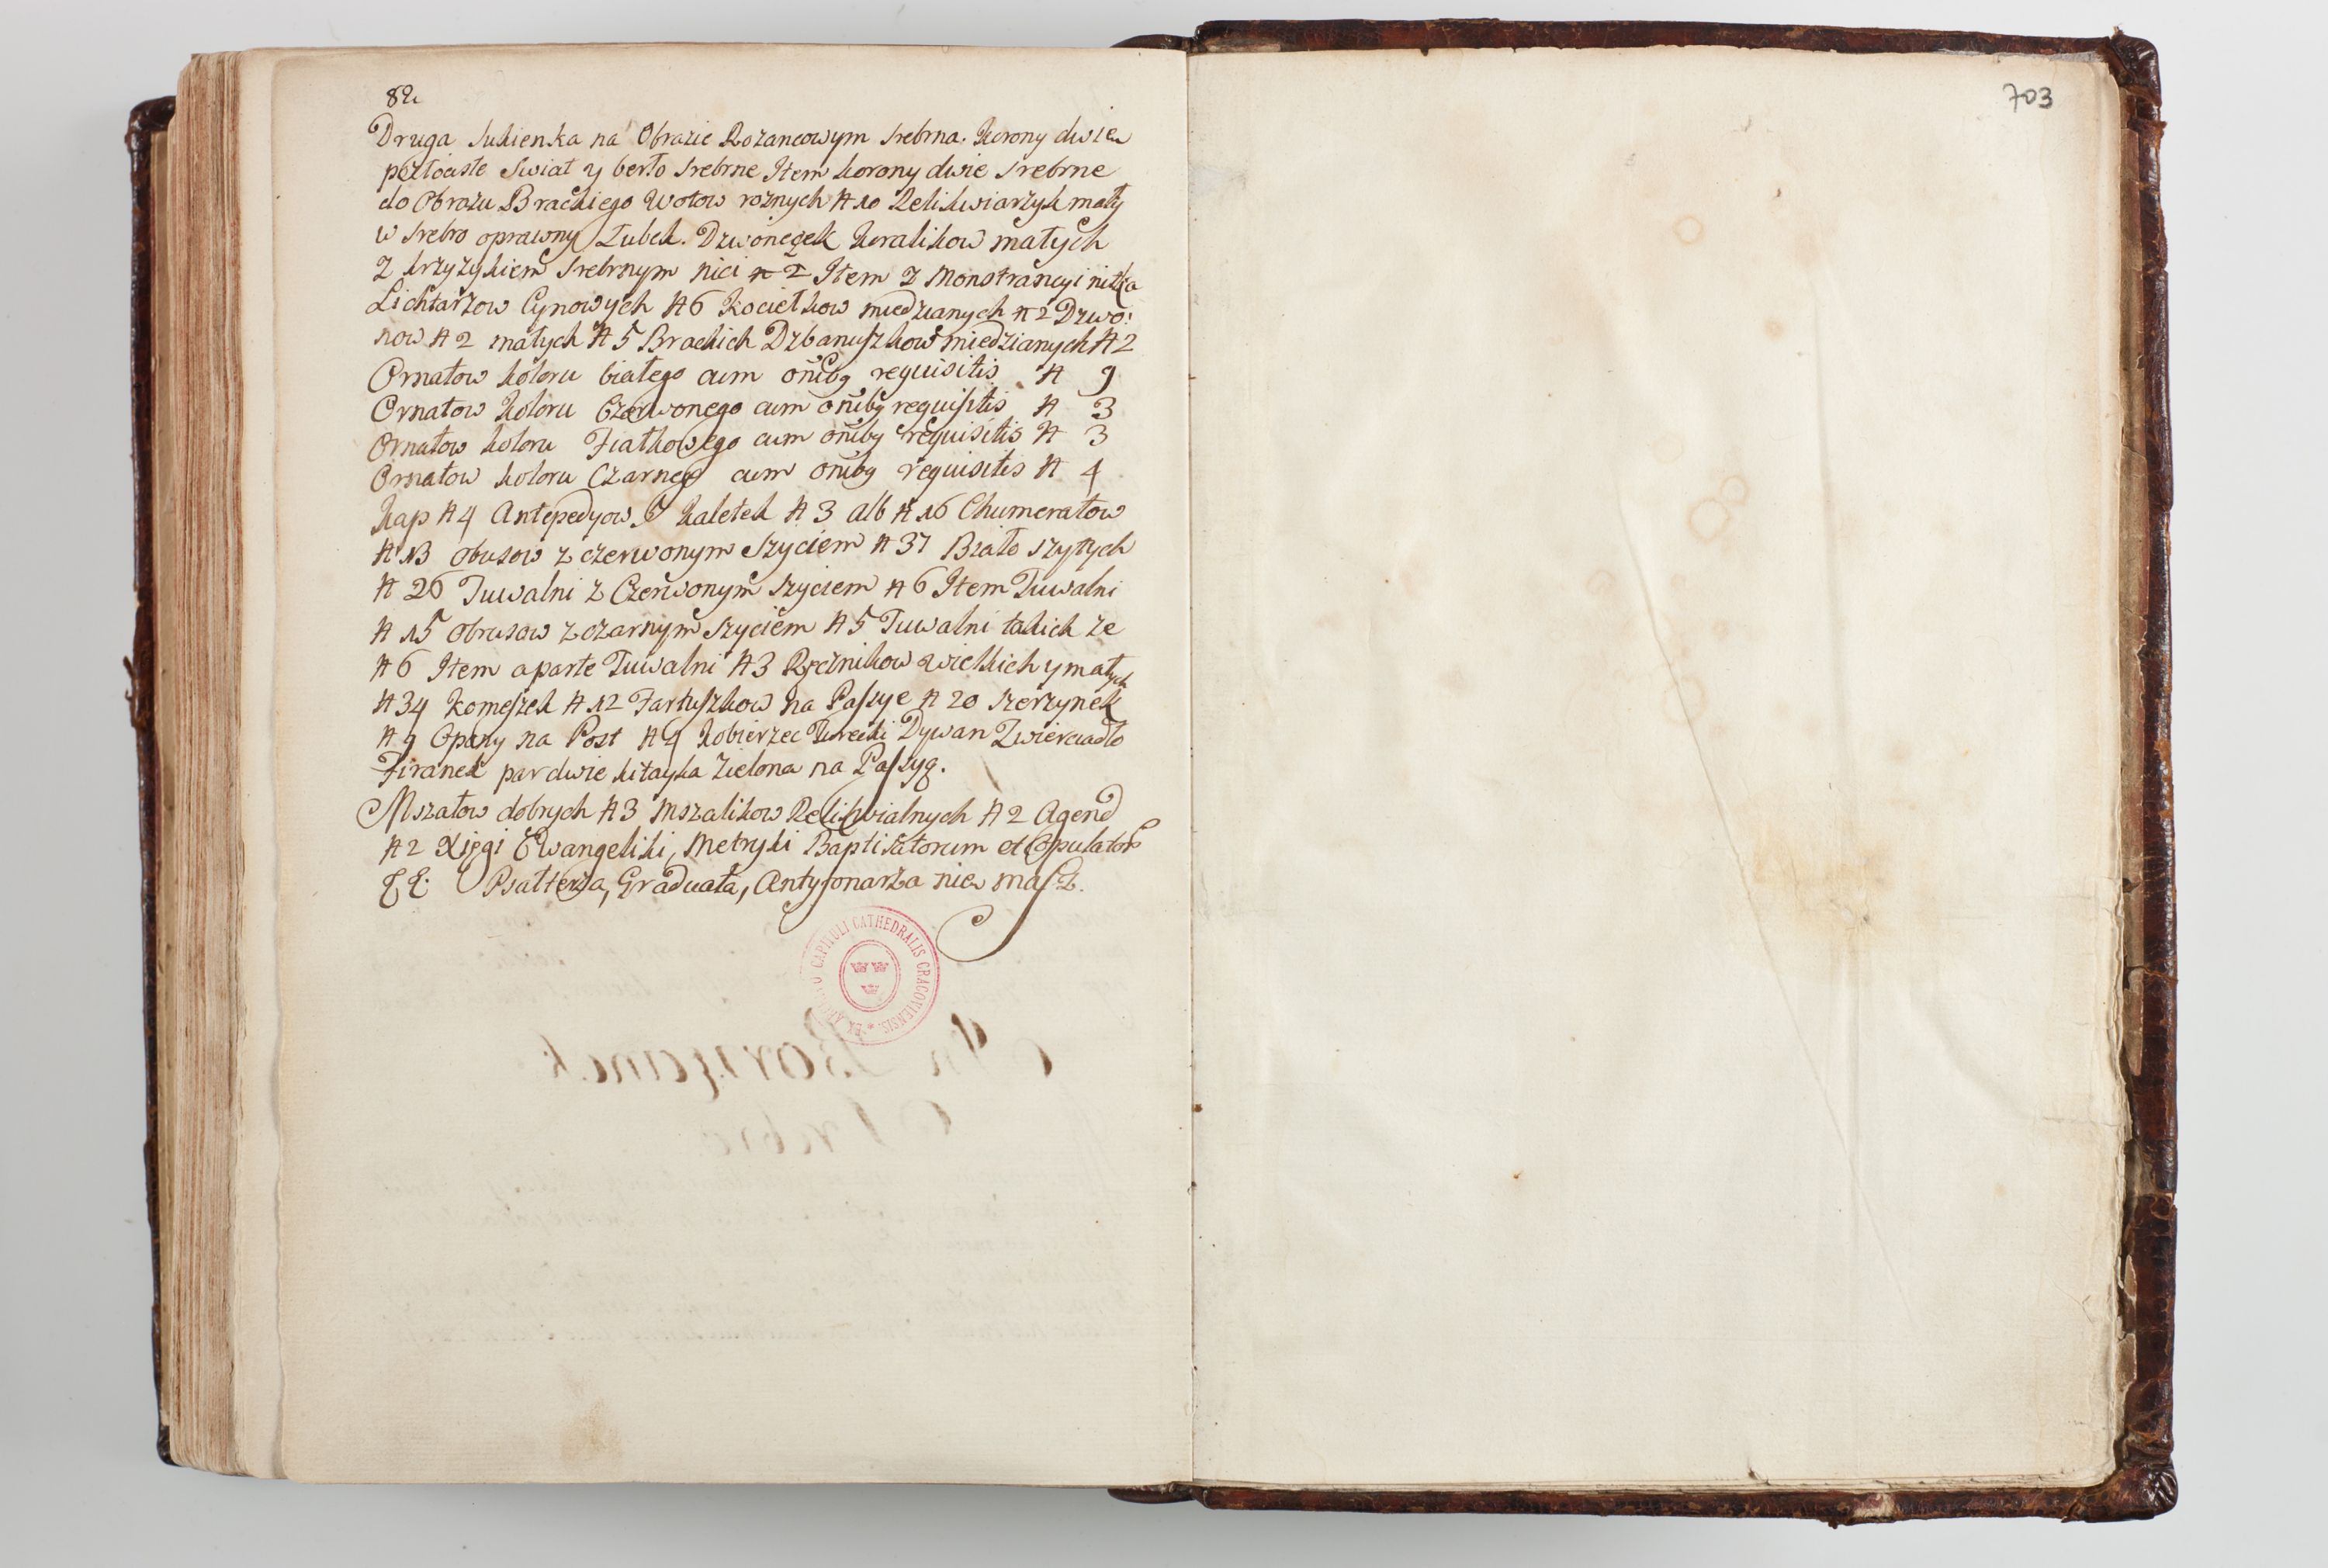 82
Druga sukienka na Obrazie Rozancowym srebrna. Korony dwie
pozłociste Swiat y berło srebrne Item korony dwie srebrne
do Obrazu Brackiego Wotow roznych N 10 Relikwiarzyk mały
w srebro oprawny Łubek. Dzwoneczek Koralikow małych
z krzyzykiem srebrnym nici N 2 Item z Monstrancyi nitka
Lichtarzow Cynowych N 6 Kociełkow miedzianych N 2 Dzwo:
now N 2 małych N 5 Brackich Dzbanuszkow miedzianych N 2
Ornatow koloru białego cum oñibq requisitis N 9
Ornatow koloru Czerwonego cum oñibq requisitis N 3
Ornatow koloru Fiałkowego cum oñibq requisitis N 3
Ornatow koloru Czarnego cum oñibq requisitis N 4
Kap N 4 Antepedyow Kaletek N 3 Alb N 16 Chumerałow
N 13 obrusow z czerwonym szyciem N 37 Biało szytych
N 26 Tuwalni z Czerwonym szyciem N 6 Item Tuwalni
N 15 Obrusow z czarnym szyciem N 5 Tuwalni takich ze
N 6 Item aparte Tuwalni N 3 Ręcznikow wielkich y małych
N 34 Komeszek N 12 Fartuszkow na Passye N 20 szerzynek
Opony na Post Kobierzec Turecki Dywan Zwierciadło
Firanek par dwie kitayka zielona na Passyą.
Mszałow dobrych N 3 Mszalikow Rekwialnych N 2 Agend
N 2 Xięgi Ewangeliki, Metryki Baptisatorum et Copulator
Psałterza, Graduała, Antyfonarza nie masz.
CAPITULI CATHEDRALIS CRACOVIENSIS
703